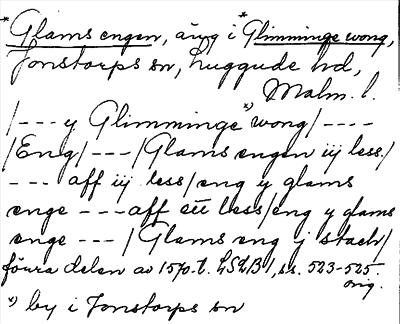 *Glams engen, äng i *Glimminge wong,
Jonstorps sn, Luggude hd,
Malm. l.
/--- y Glimminge *) wong/----
/Eng/---/Glams engen iij less/
--- aff iij less/eng y glams
enge --- aff iii less/eng y glams
enge ---/Glams eng j stach/
förra delen av 1570-t. LSLB1, ss. 523-525.
orig.
*) by i Jonstorps sn